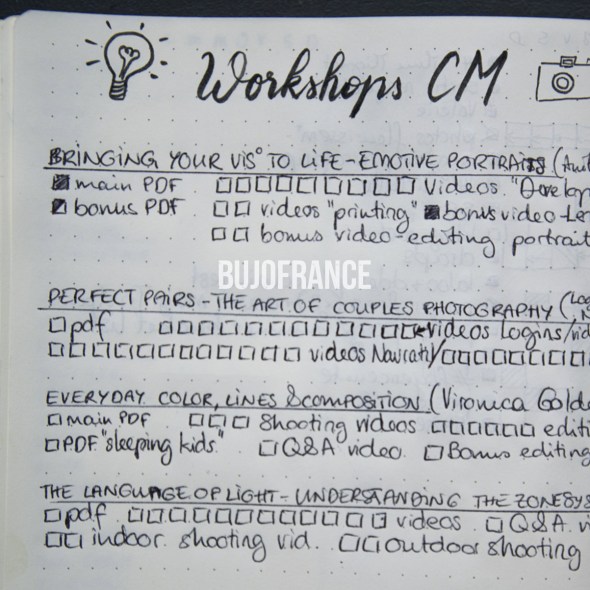 Workshops CM
BRINGING YOUR VIS° TO LIFE - EMOTIVE PORTRAITS
main PDF videos "Develop
bonus PDF videos "printing" bonus video-
bonus video-editing portrait
BUJOFRANCE
PERFECT PAIRS - THE ART OF COUPLES PHOTOGRAPHY (
pdf videos Logins/vid
videos Navratil/
EVERYDAY COLOR, LINES & COMPOSITION (Vironica Golde
main PDF shooting videos editi
PDF "sleeping kids" Q&A video. Bonus editing
THE LANGUAGE OF LIGHT - UNDERSTANDING THE ZONESYS
pdf videos Q&A vi
indoor shooting vid. outdoor shooting